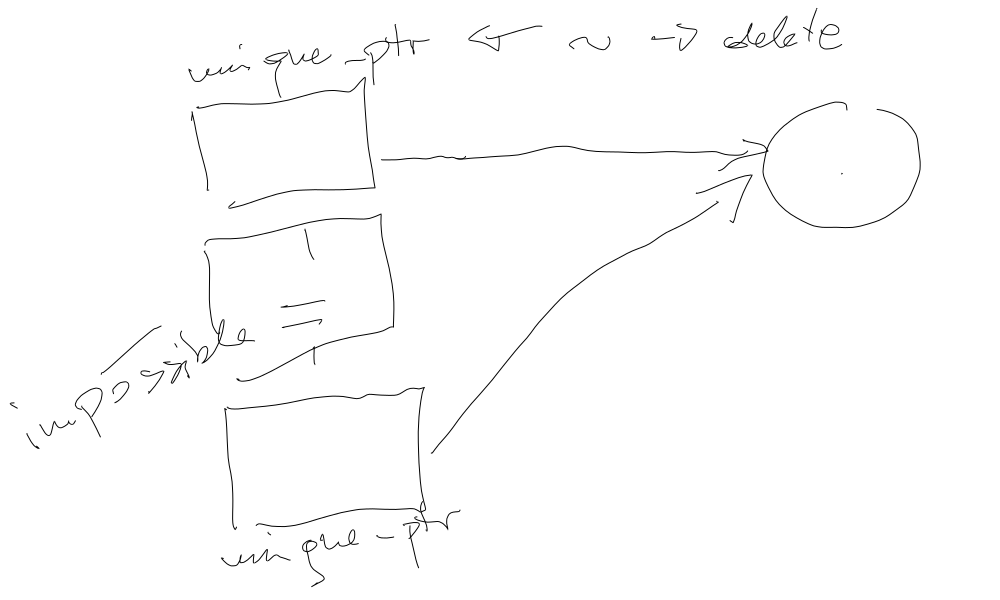 unique_ptr ← ~ → delete
=
impossible
unique_ptr